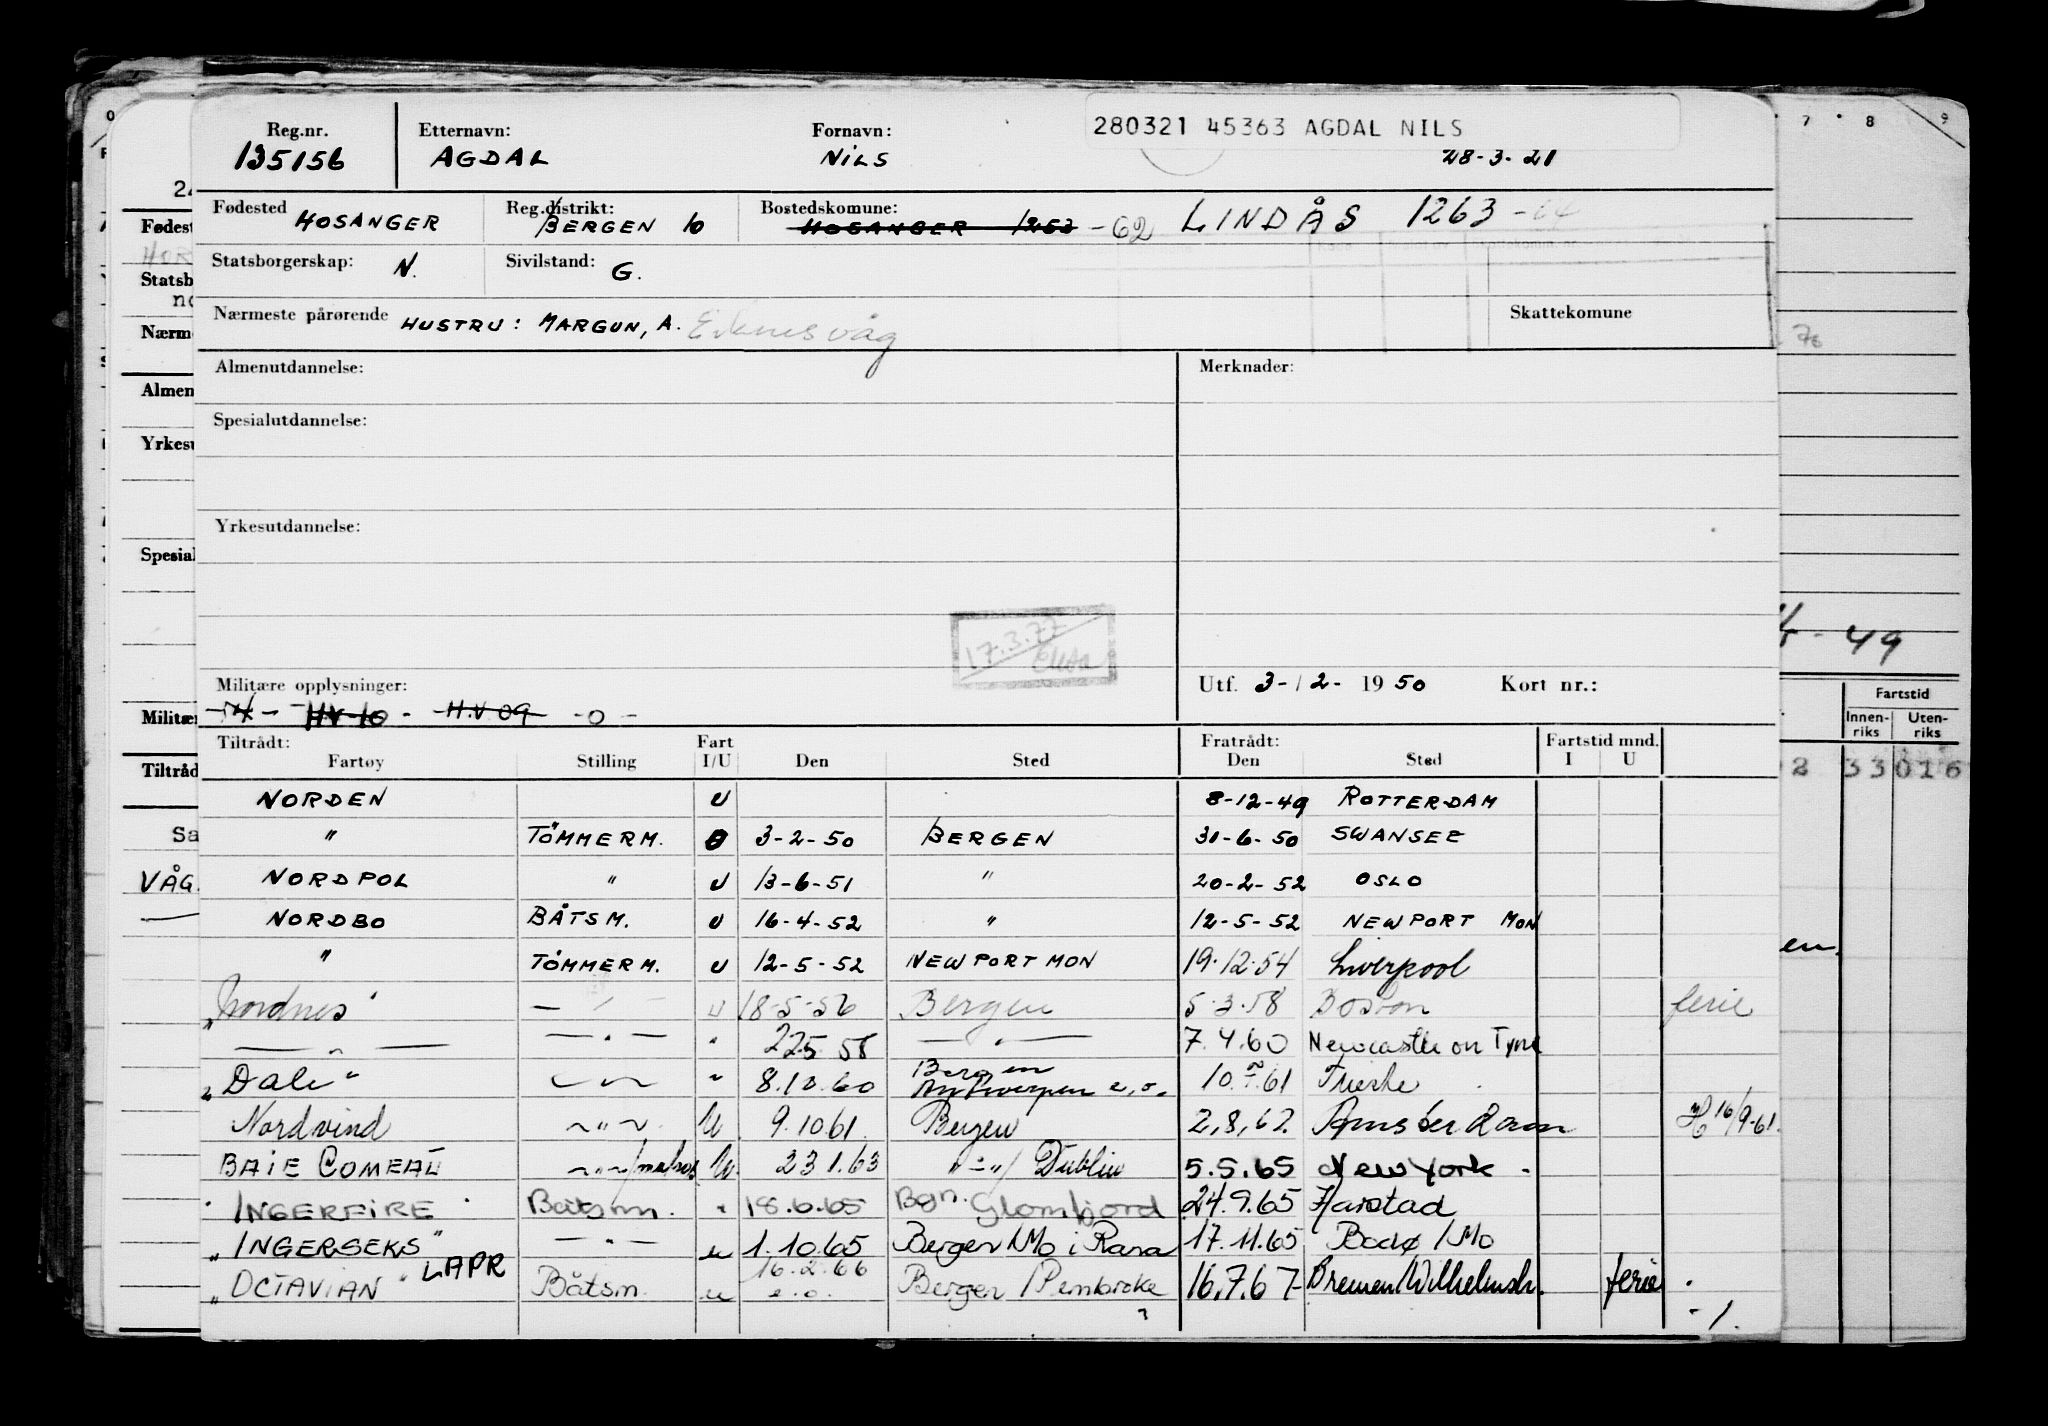 280321 45363 AGDAL NILS
Reg.nr. Etternavn: Fornavn:
135156 AGDAL NILS 28-3-21
Fødested HOSANGER Reg.distrikt: BERGEN 10 Bostedskomune: HOSANGER 1253 -62 LINDÅS 1263 -64
Statsborgerskap: N. Sivilstand: G.
Nærmeste pårørende HUSTRU: MARGUN, A. Eiknesvåg Skattekomune
Almenutdannelse: Merknader:
Spesialutdannelse:
Yrkesutdannelse:
17.3.77
Militære opplysninger: Utf. 3-12-1950 Kort nr.:
HV-10- H.V 09 -0-
Tiltrådt: Fart Fratrådt: Fartstid mnd.
Fartøy Stilling I/U Den Sted Den Sted I U
NORDEN U 8-12-49 ROTTERDAM
" TÖMMERM. 3-2-50 BERGEN 31-6-50 SWANSEE
NORDPOL " U 13-6-51 " 20-2-52 OSLO
NORDBO BÅTSM. U 16-4-52 " 12-5-52 NEWPORT MON
" TÖMMERM. U 12-5-52 NEWPORT MON 19.12.54 Liverpool
"Nordnes" — " — U 18-5-56 Bergen 5.3.58 Boston ferie
— " — — " — " 22.5.58 — " — 7.4.60 Newcastle on Tyne
"Dale" — " — " 8.10.60 Bergen Antwerpen e.o. 10.7.61 Trieste
Nordvind ~"~. U 9.10.61. Bergen 2,8,62. Amsterdam 16/9-61.
BAIE COMEAU ~"~/matros U. 23 1.63 "-"/ Dublin 5.5.65 New York -
"INGERFIRE" Båtsm. " 18.6.65 Bgn. Glomfjord 24.9.65 Harstad
"INGERSEKS" — " — u 1.10.65 Bergen/Mo i Rana 17.11.65 Bodø/Mo
"OCTAVIAN" LAPR Båtsm. u 16.2.66 e.o. Bergen/Pembroke 16.7.67 Bremen/Wilhelmsh. ferie
- 1.
7 8 9
49
Fartstid
Innen- Uten-
riks riks
2 33016
en.
Fødest
Statsb
no
Nærme
Almen
Yrkesu
Spesial
Militær
Tiltråd
Sa
VÅG.